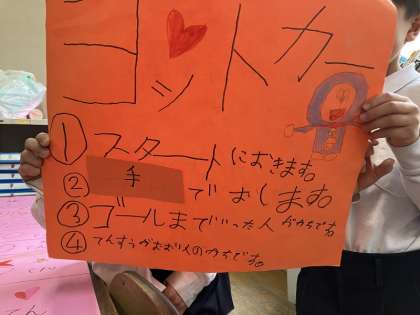 ゴットカー
①スタートにおきます。
②手でおします。
③ゴールまでいった人がかちです。
④てんすうがおおい人のかちです。